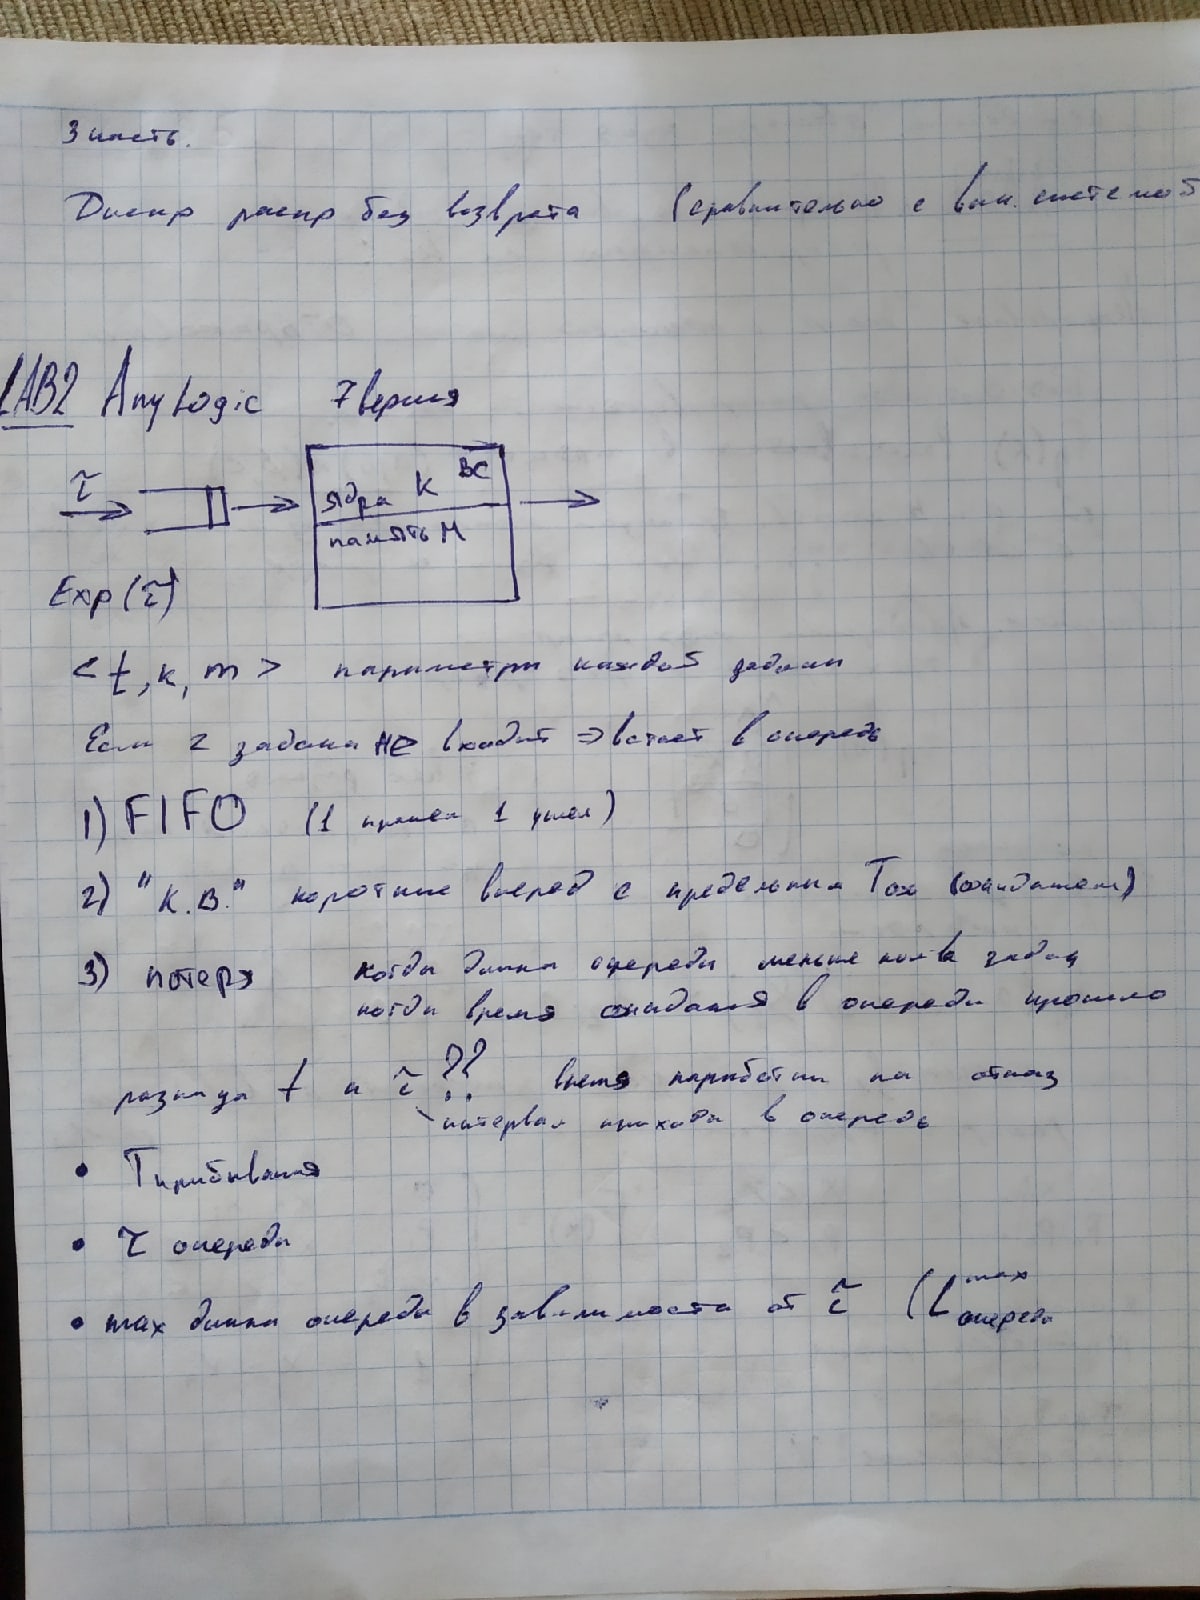 3 часть.
Диспр распр без возврата (сравнительно с выч. системой
LAB2 AnyLogic 7 версия
τ̃
ядра K ВС
память M
Exp(τ̃)
<t, k, m> параметры каждой задачи
Если 2 задача не входит => встает в очередь
1) FIFO (1 пришел 1 ушел)
2) "К.В." короткие вперед с предельным Tож (ожидания)
3) потеря когда длина очереди меньше кол-ва задач
когда время ожидания в очереди прошло
разница t и τ̃ ?? время наработки на отказ
интервал прихода в очередь
• Tпребывания
• τ очереди
• max длина очереди в зависимости от τ̃ (L max очереди